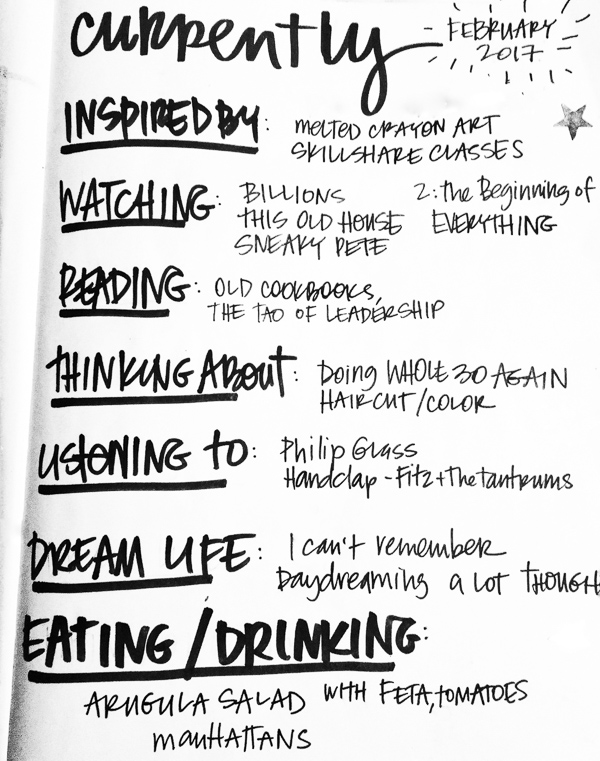 currently
FEBRUARY
2017
INSPIRED BY: MELTED CRAYON ART
SKILLSHARE CLASSES
WATCHING: BILLIONS 2: the Beginning of
THIS OLD HOUSE EVERYTHING
SNEAKY PETE
READING: OLD COOKBOOKS,
THE TAO OF LEADERSHIP
THINKING ABOUT: Doing WHOLE 30 AGAIN
HAIRCUT/COLOR
LISTENING TO: Philip Glass
Handclap - Fitz + The Tantrums
DREAM LIFE: I can't remember
Daydreaming a lot THOUGH
EATING/DRINKING:
ARUGULA SALAD WITH FETA, TOMATOES
MANHATTANS